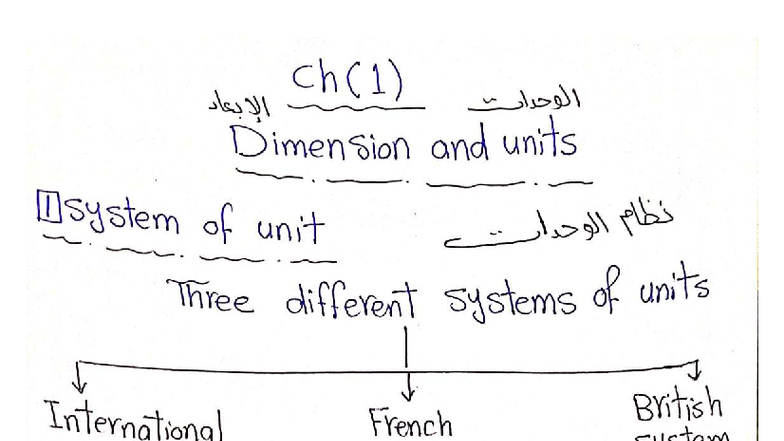 Ch(1)
الابعاد الوحدات
Dimension and units
1 system of unit نظام الوحدات
Three different systems of units
International French British
system